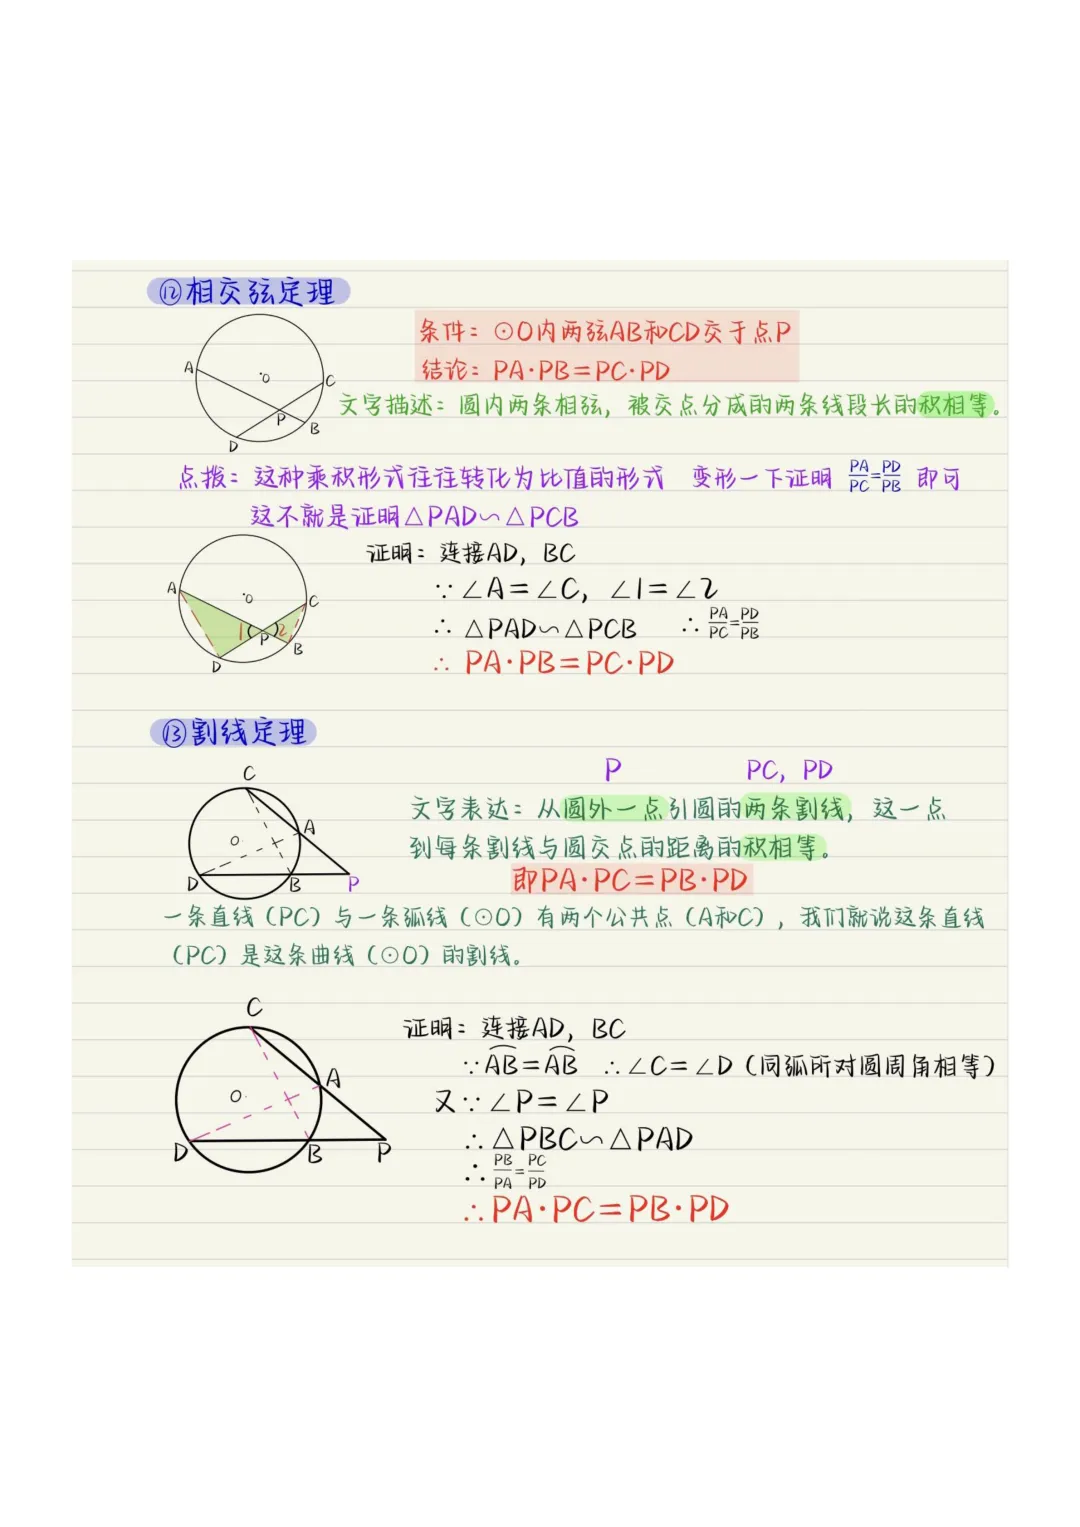 ⑫相交弦定理
条件：⊙O内两弦AB和CD交于点P
结论：PA·PB=PC·PD
A O C P B D
文字描述：圆内两条相弦，被交点分成的两条线段长的积相等。
点拨：这种乘积形式往往转化为比值的形式 变形一下证明 PA/PC=PD/PB 即可
这不就是证明△PAD∽△PCB
A O C 1 P 2 B D
证明：连接AD，BC
∵∠A=∠C，∠1=∠2
∴△PAD∽△PCB ∴PA/PC=PD/PB
∴PA·PB=PC·PD
⑬割线定理
C A O D B P
P PC，PD
文字表达：从圆外一点引圆的两条割线，这一点
到每条割线与圆交点的距离的积相等。
即PA·PC=PB·PD
一条直线（PC）与一条弧线（⊙O）有两个公共点（A和C），我们就说这条直线
（PC）是这条曲线（⊙O）的割线。
C A O D B P
证明：连接AD，BC
∵A͡B=A͡B ∴∠C=∠D（同弧所对圆周角相等）
又∵∠P=∠P
∴△PBC∽△PAD
∴PB/PA=PC/PD
∴PA·PC=PB·PD